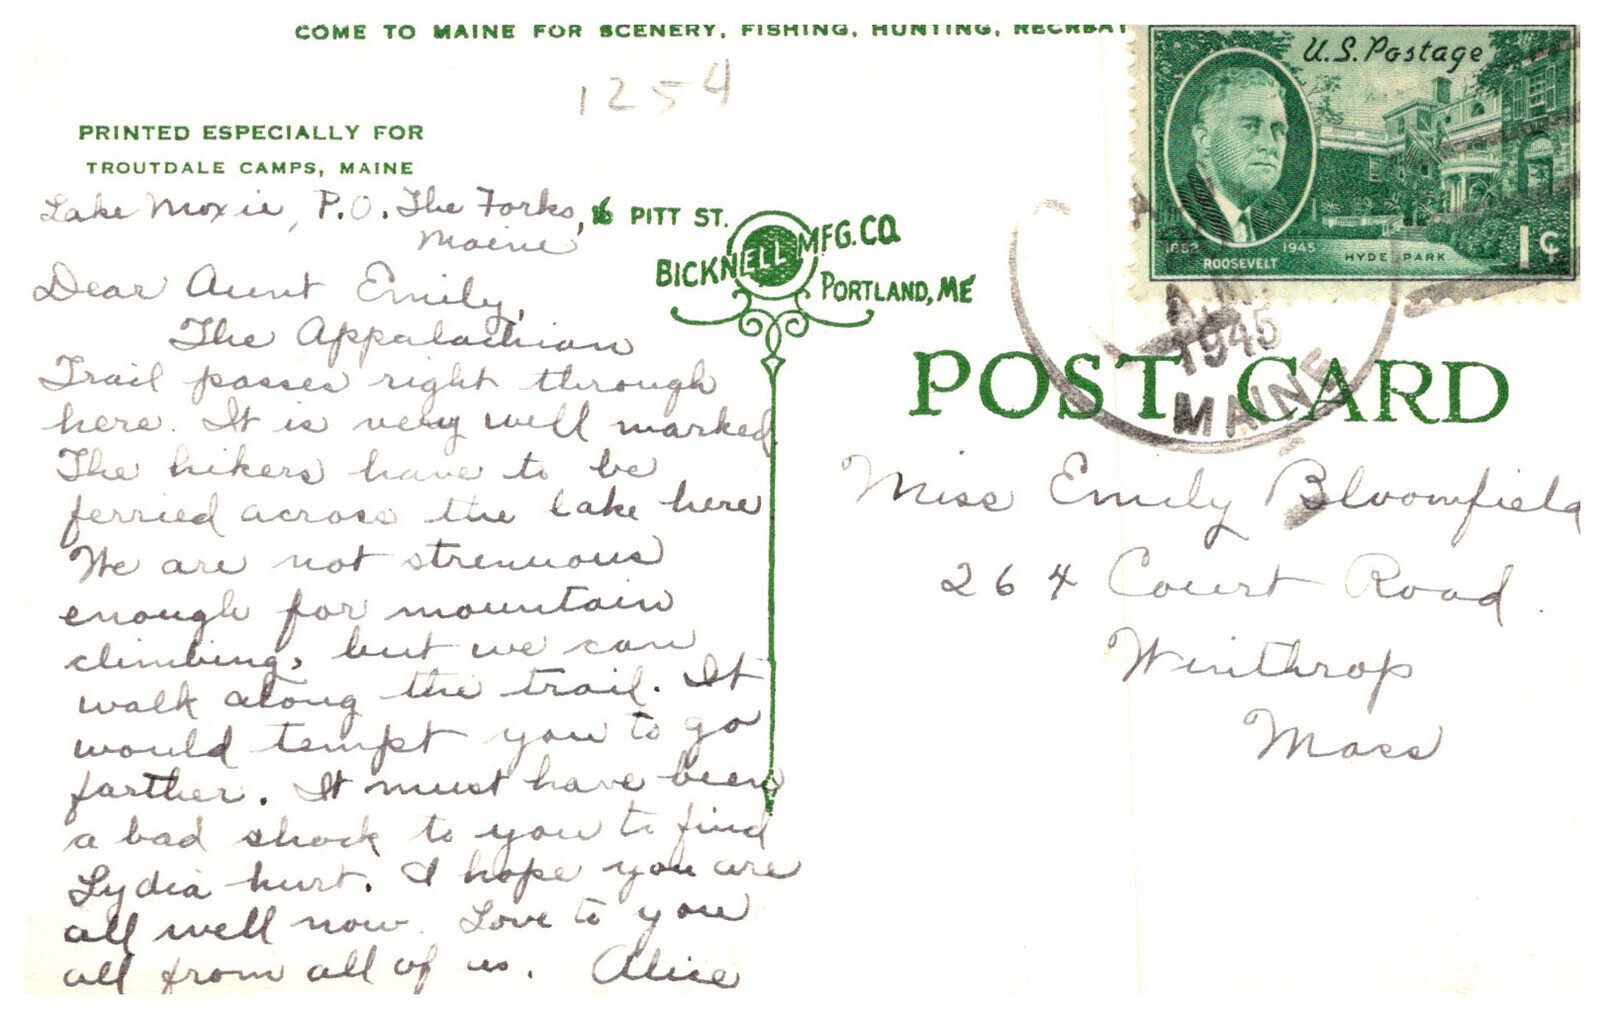 COME TO MAINE FOR SCENERY, FISHING, HUNTING, RECREAT
1254
PRINTED ESPECIALLY FOR
TROUTDALE CAMPS, MAINE
Lake Moxie, P.O. The Forks,
Maine
Dear Aunt Emily,
The Appalachian
Trail passes right through
here. It is very well marked
The hikers have to be
ferried across the lake here
We are not strenuous
enough for mountain
climbing, but we can
walk along the trail. It
would tempt you to go
farther. It must have been
a bad shock to you to find
Lydia hurt. I hope you are
all well now. Love to you
all from all of us. Alice
16 PITT ST.
BICKNELL MFG. CO.
PORTLAND, ME
U.S. Postage
1882 1945
ROOSEVELT
HYDE PARK
1¢
A.M.
1945
MAINE
POST CARD
Miss Emily Bloomfield
264 Court Road
Winthrop
Mass